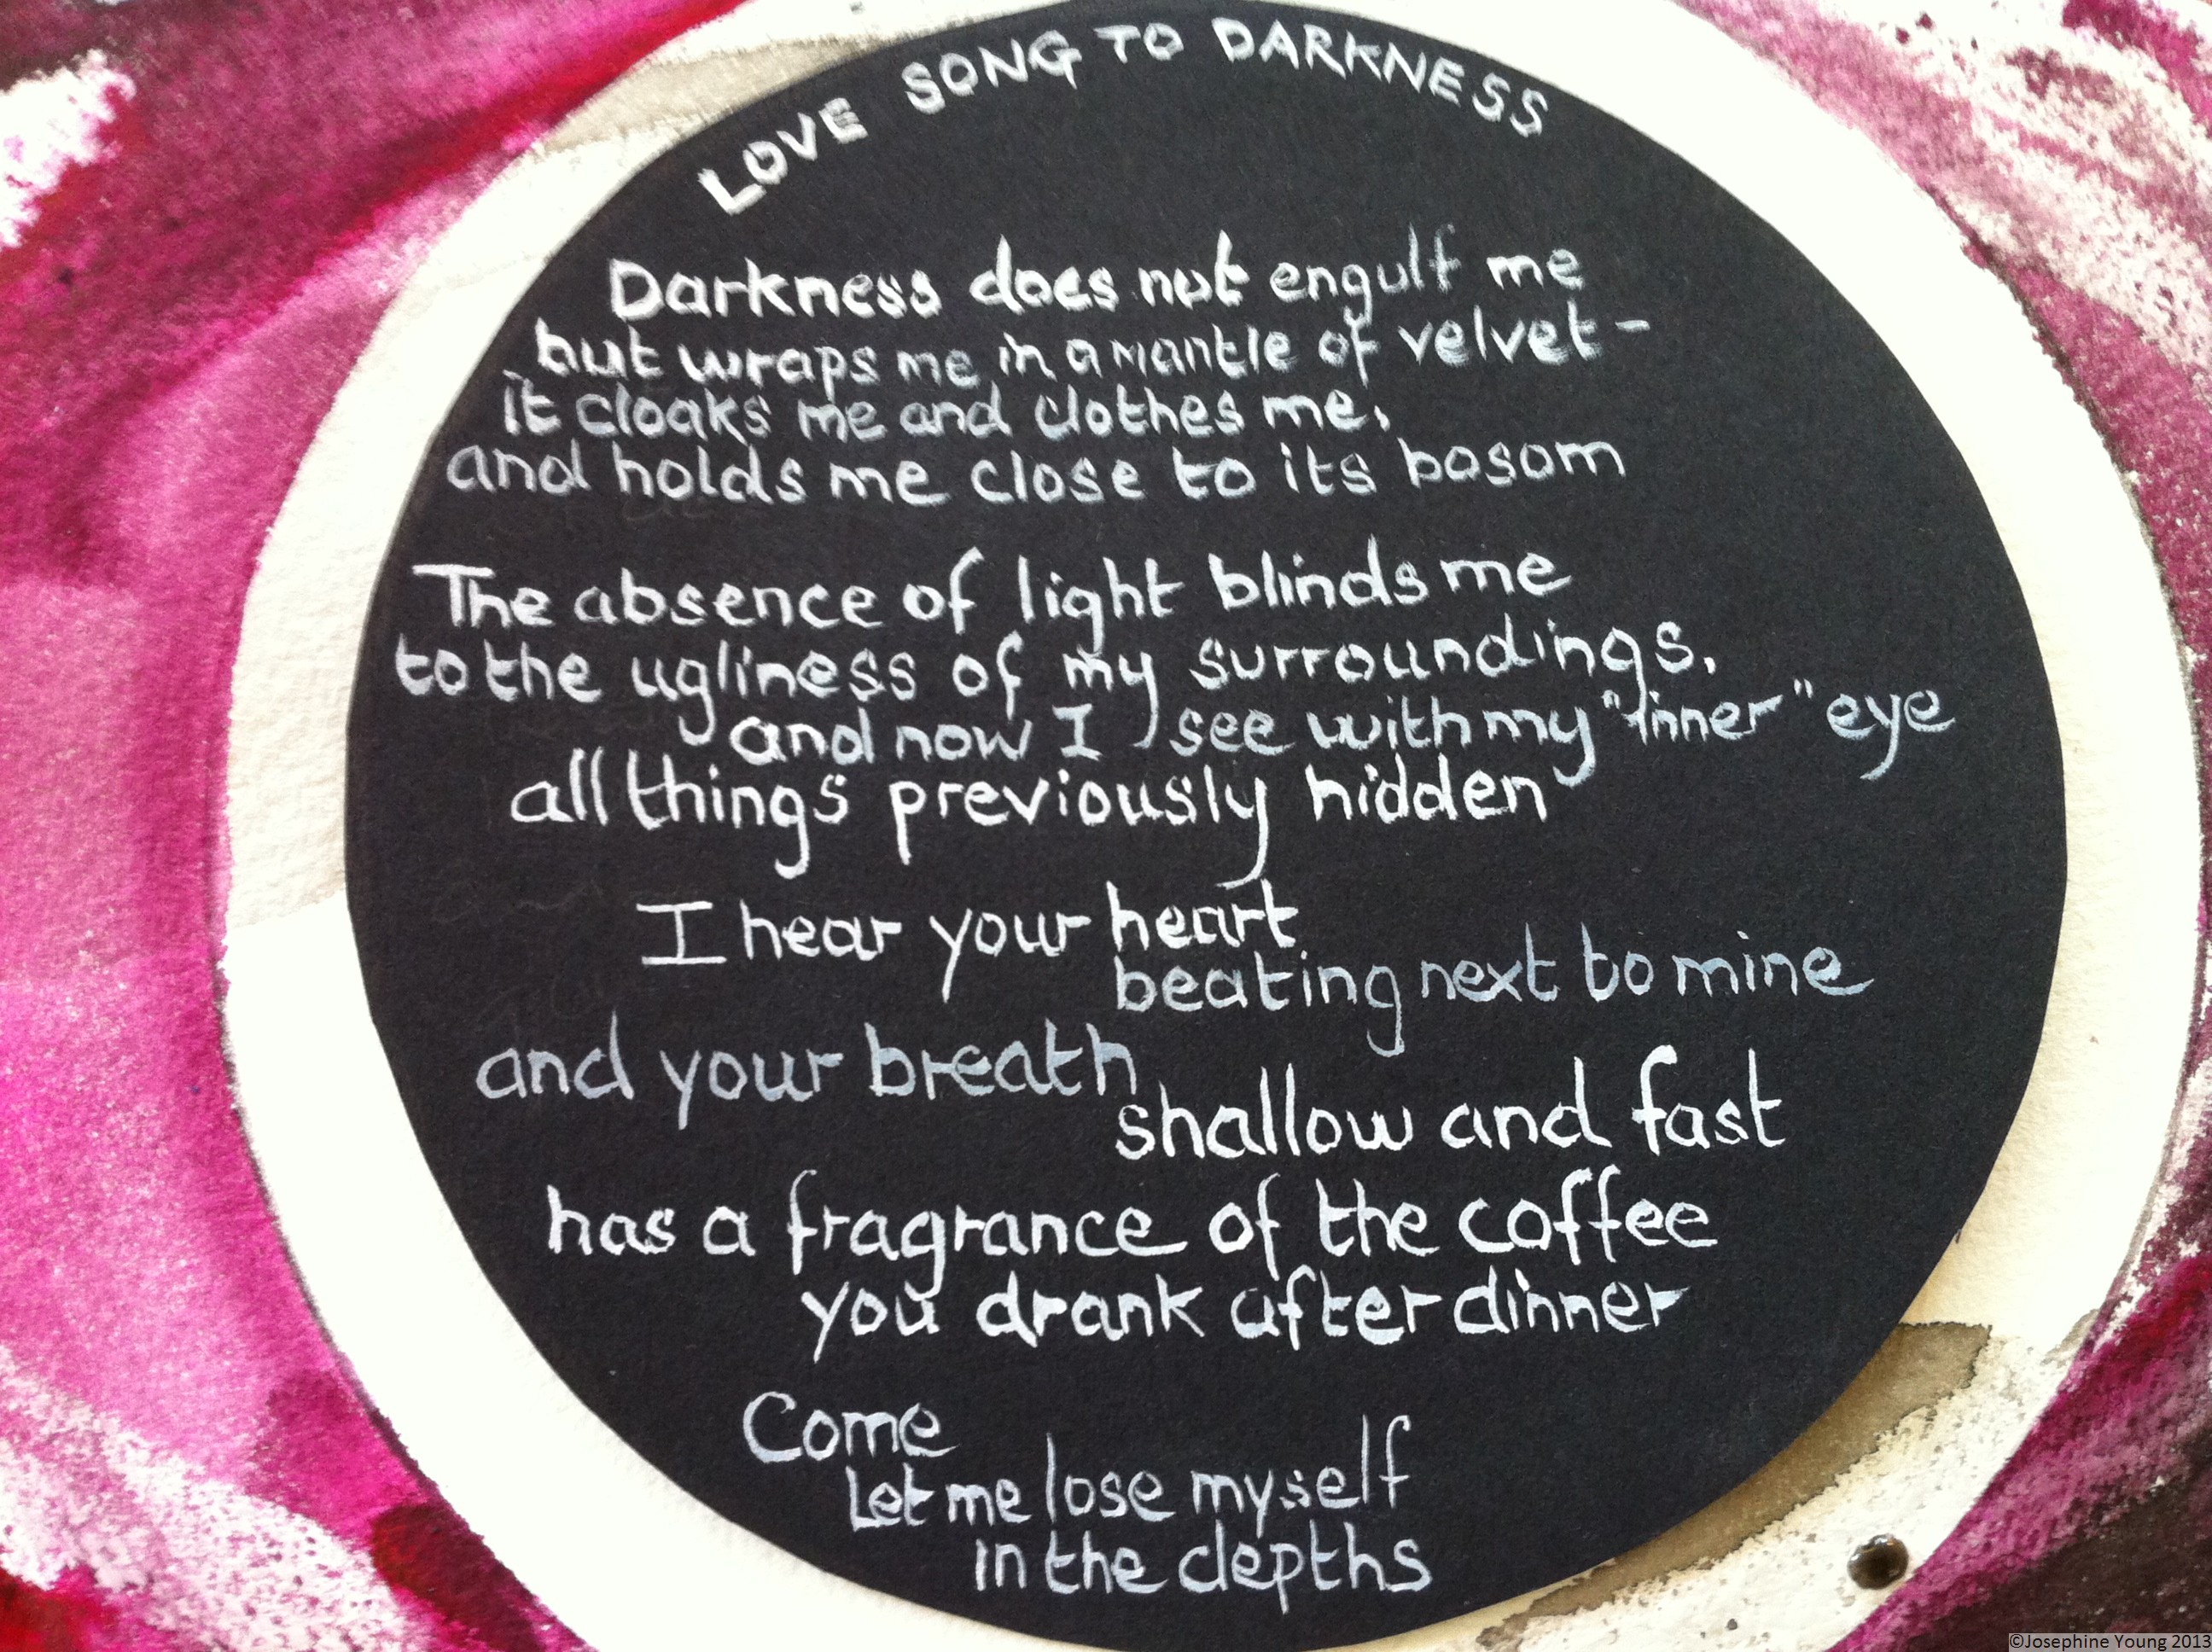 LOVE SONG TO DARKNESS
Darkness does not engulf me
but wraps me in a mantle of velvet -
it cloaks me and clothes me,
and holds me close to its bosom
The absence of light blinds me
to the ugliness of my surroundings,
and now I see with my "inner" eye
all things previously hidden
I hear your heart
beating next to mine
and your breath
shallow and fast
has a fragrance of the coffee
you drank after dinner
Come
Let me lose myself
in the depths
©Josephine Young 2013